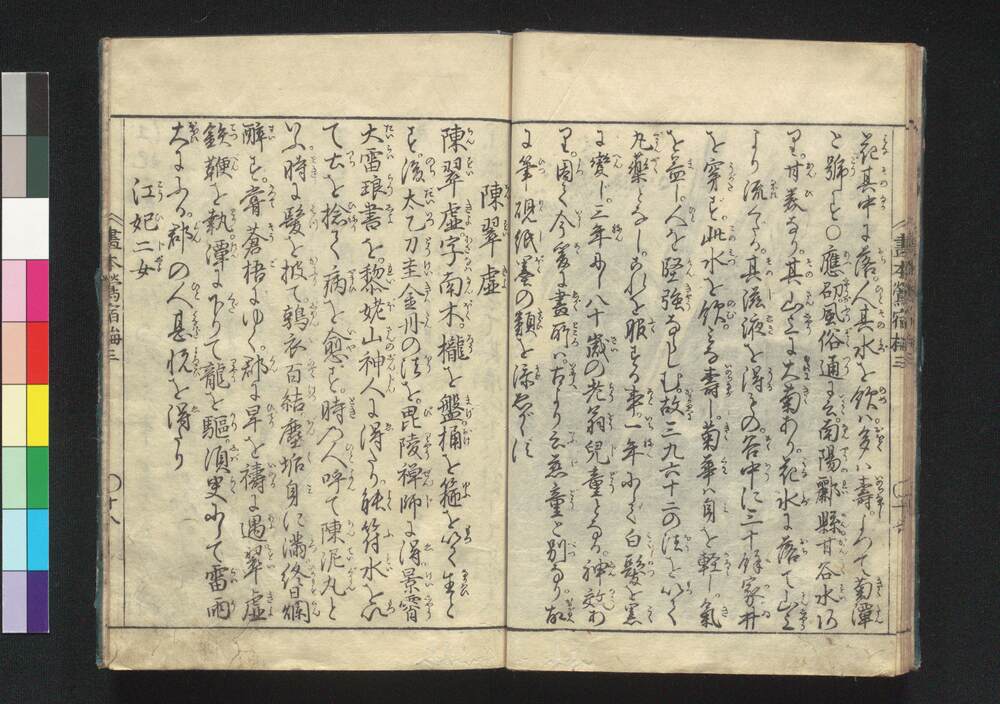 花其中に落人其水を飲ば多は壽しよつて菊潭
と號しと〇應劭風俗通に云南陽酈縣甘谷水乃
甘美なり其山上に大菊あり花水に落て山上
より流て其滋液を得るの谷中に三十餘家井
を穿ず此水を飲える壽し菊華は身を軽し氣
を益し人を堅強ならしむ故三九六十二の法をいて
丸藥となしこれを服する事一年にして白髪を黒
に變じ三年にして八十歳の老翁兒童となる神效あ
り因て今爰に畫所は古より云慈童と別なり故
に筆硯紙墨の類を添ゑがく
陳翠虚
陳翠虚字南木櫳を盤桶を箍をいて生と
す後太乙刀圭金丹の法を毘陵禅師に得景霄
大雷琅書を黎姥山神人に得たり能符水を
て土を捻て病を愈す時の人呼て陳泥丸と
いふ時に髪を披て鶉衣百結塵垢身に滿終日爛
醉す嘗蒼梧にゆく郡に旱を禱に遇翠虚
鐵鞭を執潭に下りて龍を驅須臾にして雷雨
大にふる郡の人甚恠を得たり
江妃二女
畫本鶯宿梅三
畫本鶯宿梅三
〇十八